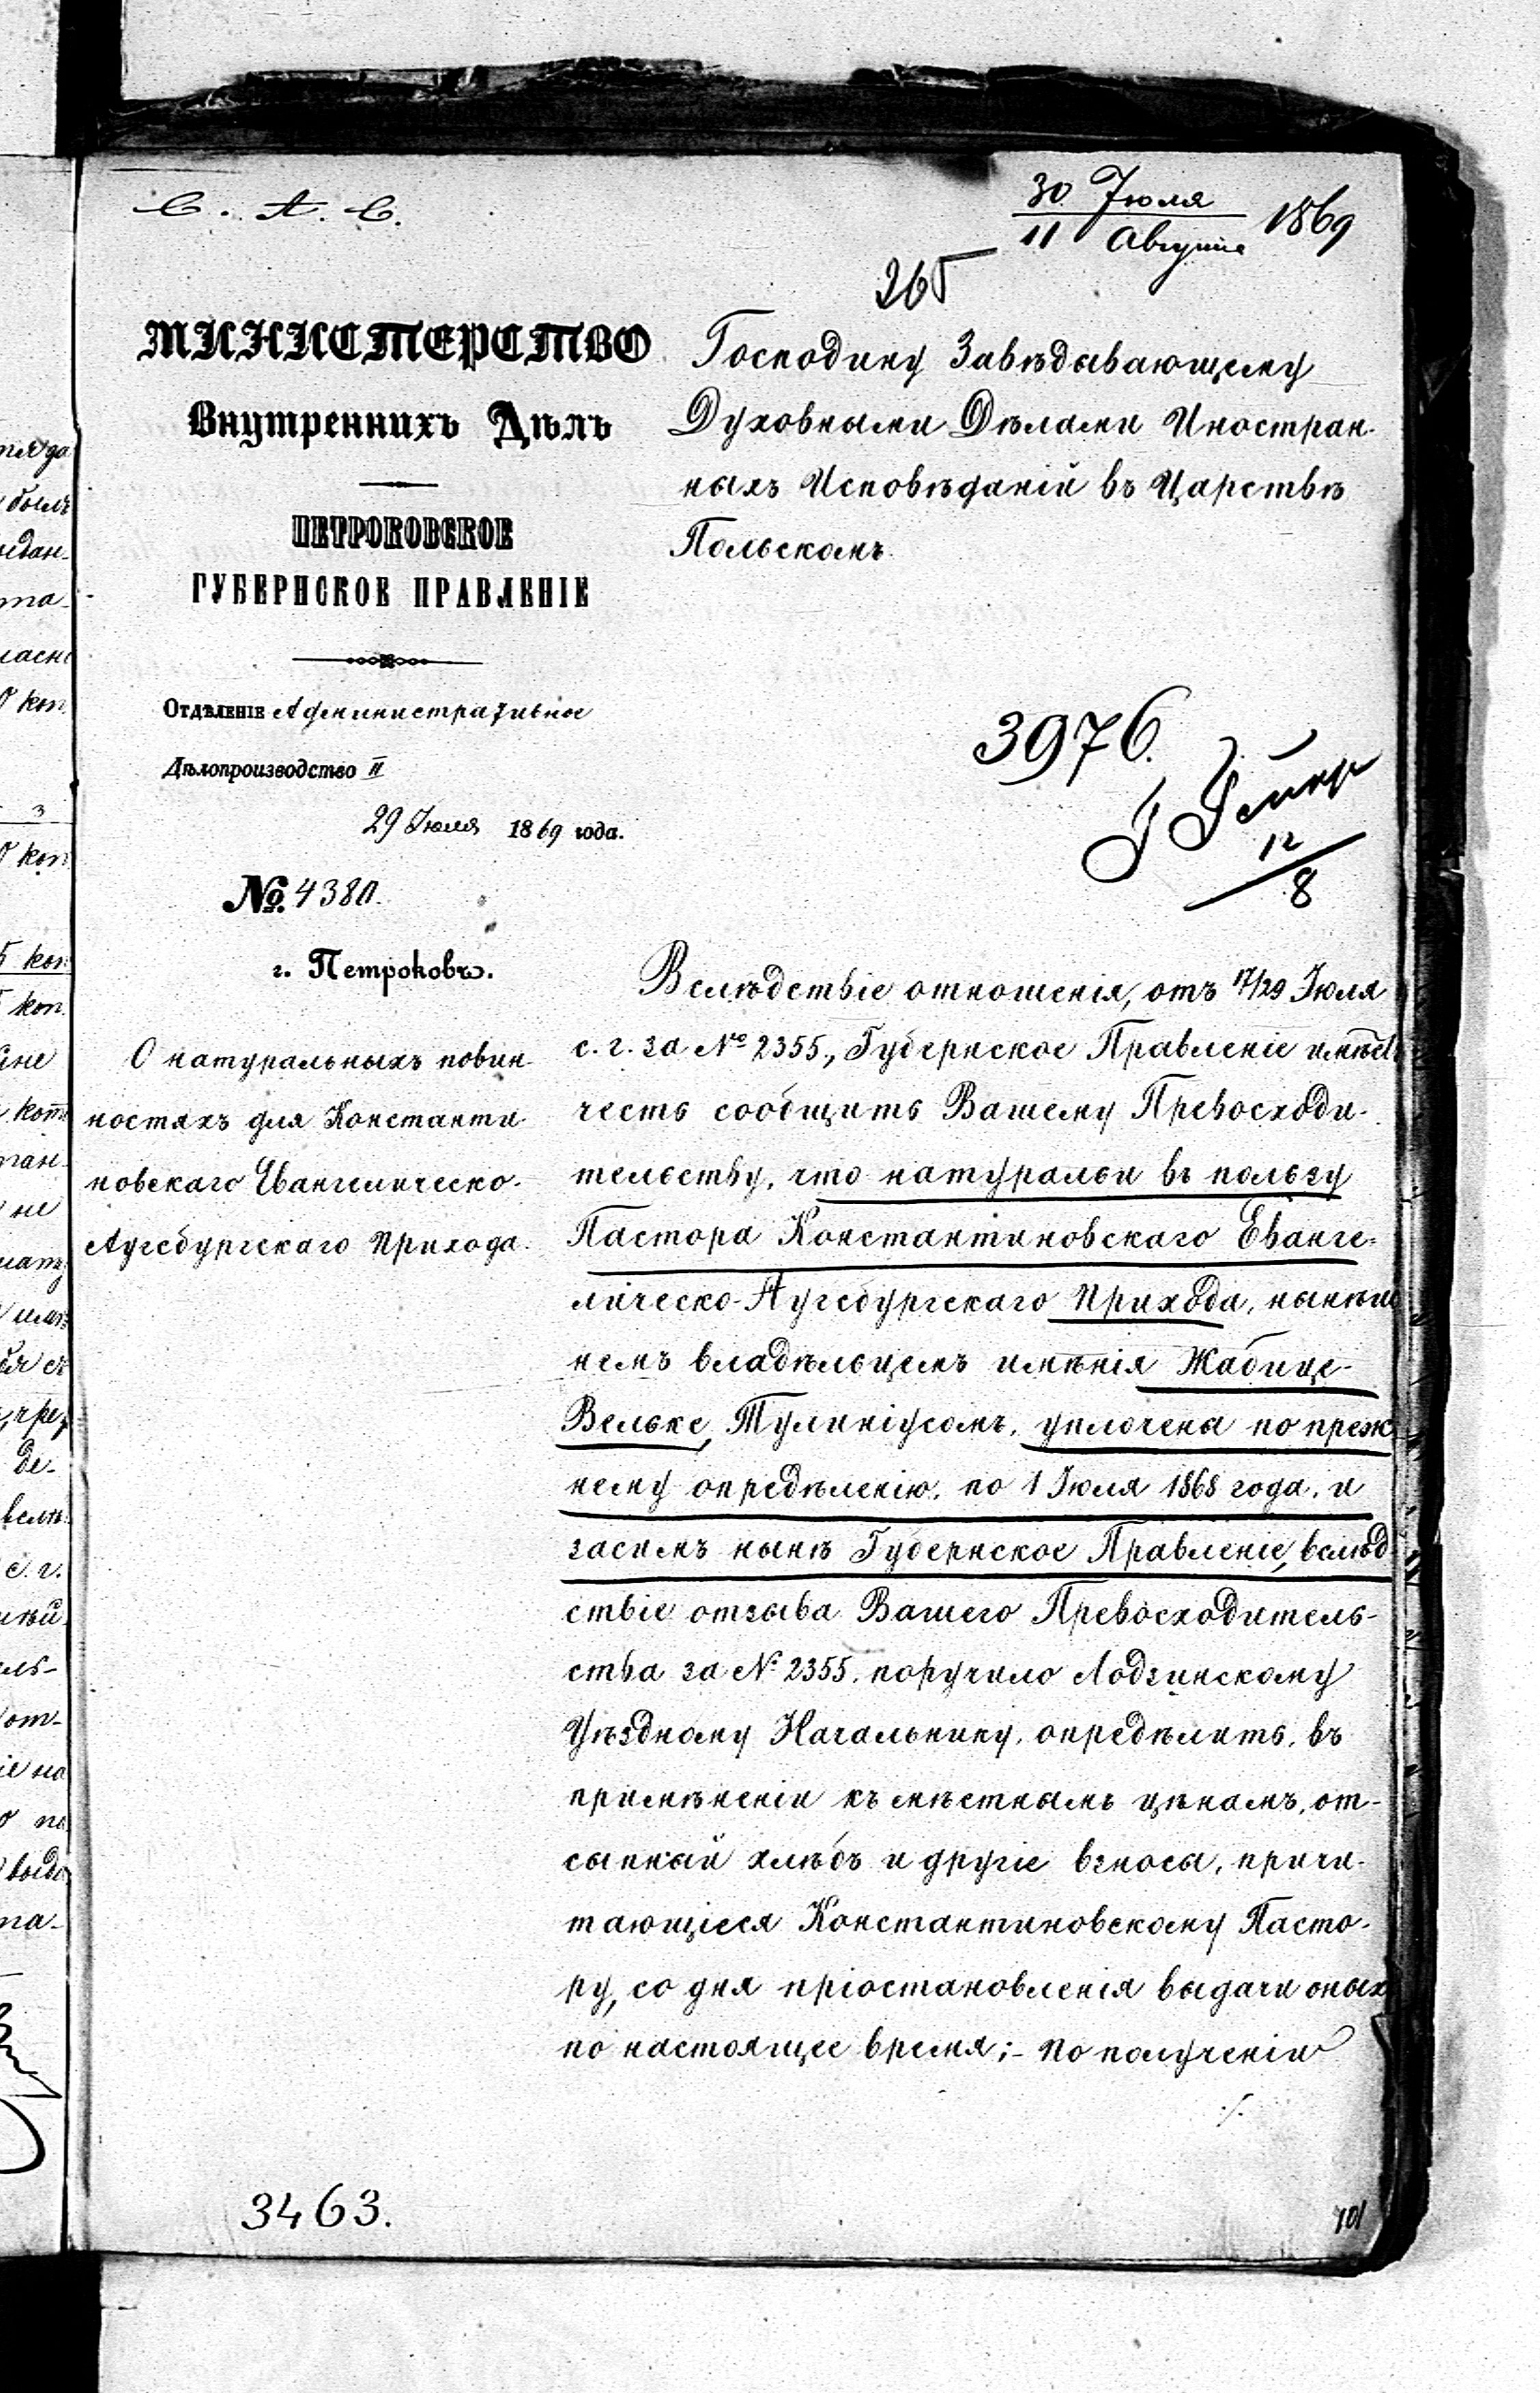 С. А. С.
30 Іюля
11 Августа 1869
265
МИНИСТЕРСТВО
Внутреннихъ Дѣлъ
ПЕТРОКОВСКОЕ
ГУБЕРНСКОЕ ПРАВЛЕНІЕ
Отдѣленіе Административное
Дѣлопроизводство II
29 Іюля 1869 года.
№ 4380.
г. Петроковъ.
О натуральныхъ повин-
ностяхъ для Константи-
новскаго Евангелическо-
Аугсбургскаго Прихода.
Господину Завѣдывающему
Духовными Дѣлами Иностран-
ныхъ Исповѣданій въ Царствѣ
Польскомъ
3976.
12
8
Вслѣдствіе отношенія, отъ 17/29 Іюля
с. г. за № 2355, Губернское Правленіе имѣетъ
честь сообщить Вашему Превосходи-
тельству, что натуральи въ пользу
Пастора Константиновскаго Еванге-
лическо-Аугсбургскаго Прихода, нынѣш
немъ владѣльцемъ имѣнія Жабице-
Вельке, Тулиніусомъ, уплочены по преж
нему опредѣленію, по 1 Іюля 1868 года, и
засимъ нынѣ Губернское Правленіе, вслѣд
ствіе отзыва Вашего Превосходитель-
ства за № 2355, поручило Лодзинскому
Уѣздному Начальнику, опредѣлить, въ
примѣненіи къ мѣстнымъ цѣнамъ, от-
сыпный хлѣбъ и другіе взносы, причи-
тающіеся Константиновскому Пасто-
ру, со дня пріостановленія выдачи оныхъ
по настоящее время; - По полученіи
./.
3463.
101